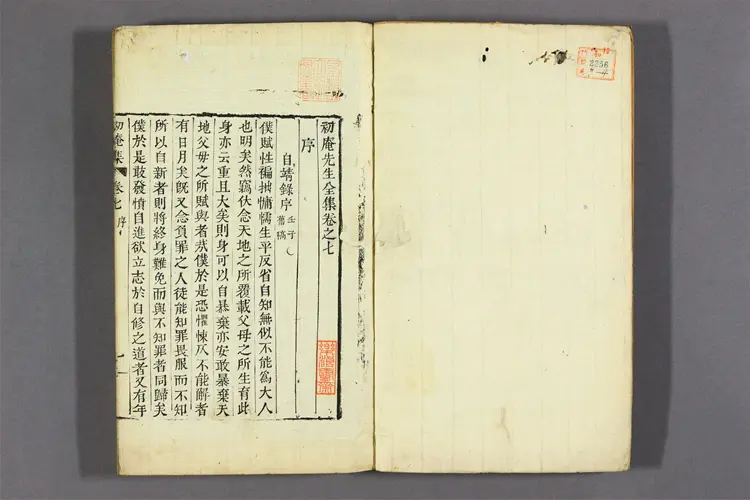 初庵先生全集卷之七
序
自靖錄序 壬子舊稿
僕賦性褊拙慵懦生平反省自知無似不能爲大人
也明矣然竊伏念天地之所覆載父母之所生育此
身亦云重且大矣則身可以自暴棄亦安敢暴棄天
地父母之所賦與者哉僕於是恐懼悚仄不能解者
有日月矣旣又念負罪之人徒能知罪畏服而不知
所以自新者則將終身難免而與不知罪者同歸矣
僕於是敢發憤自進欲立志於自修之道者又有年
初庵集 卷七 序 一
2356